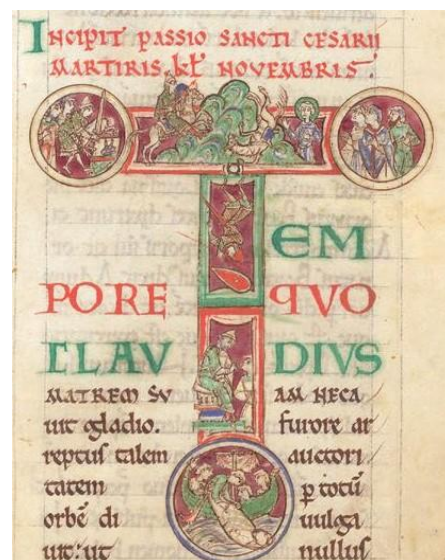 INCIPIT PASSIO SANCTI CESARII
MARTIRIS. kł NOVEMBRIS.
TEM
PORE QVO
CLAVDIVS
MATREM SVAM NECA
uit gladio. furore ar
reptus talem auctori
tatem p totū
orbē di uulga
uit: ut nullus